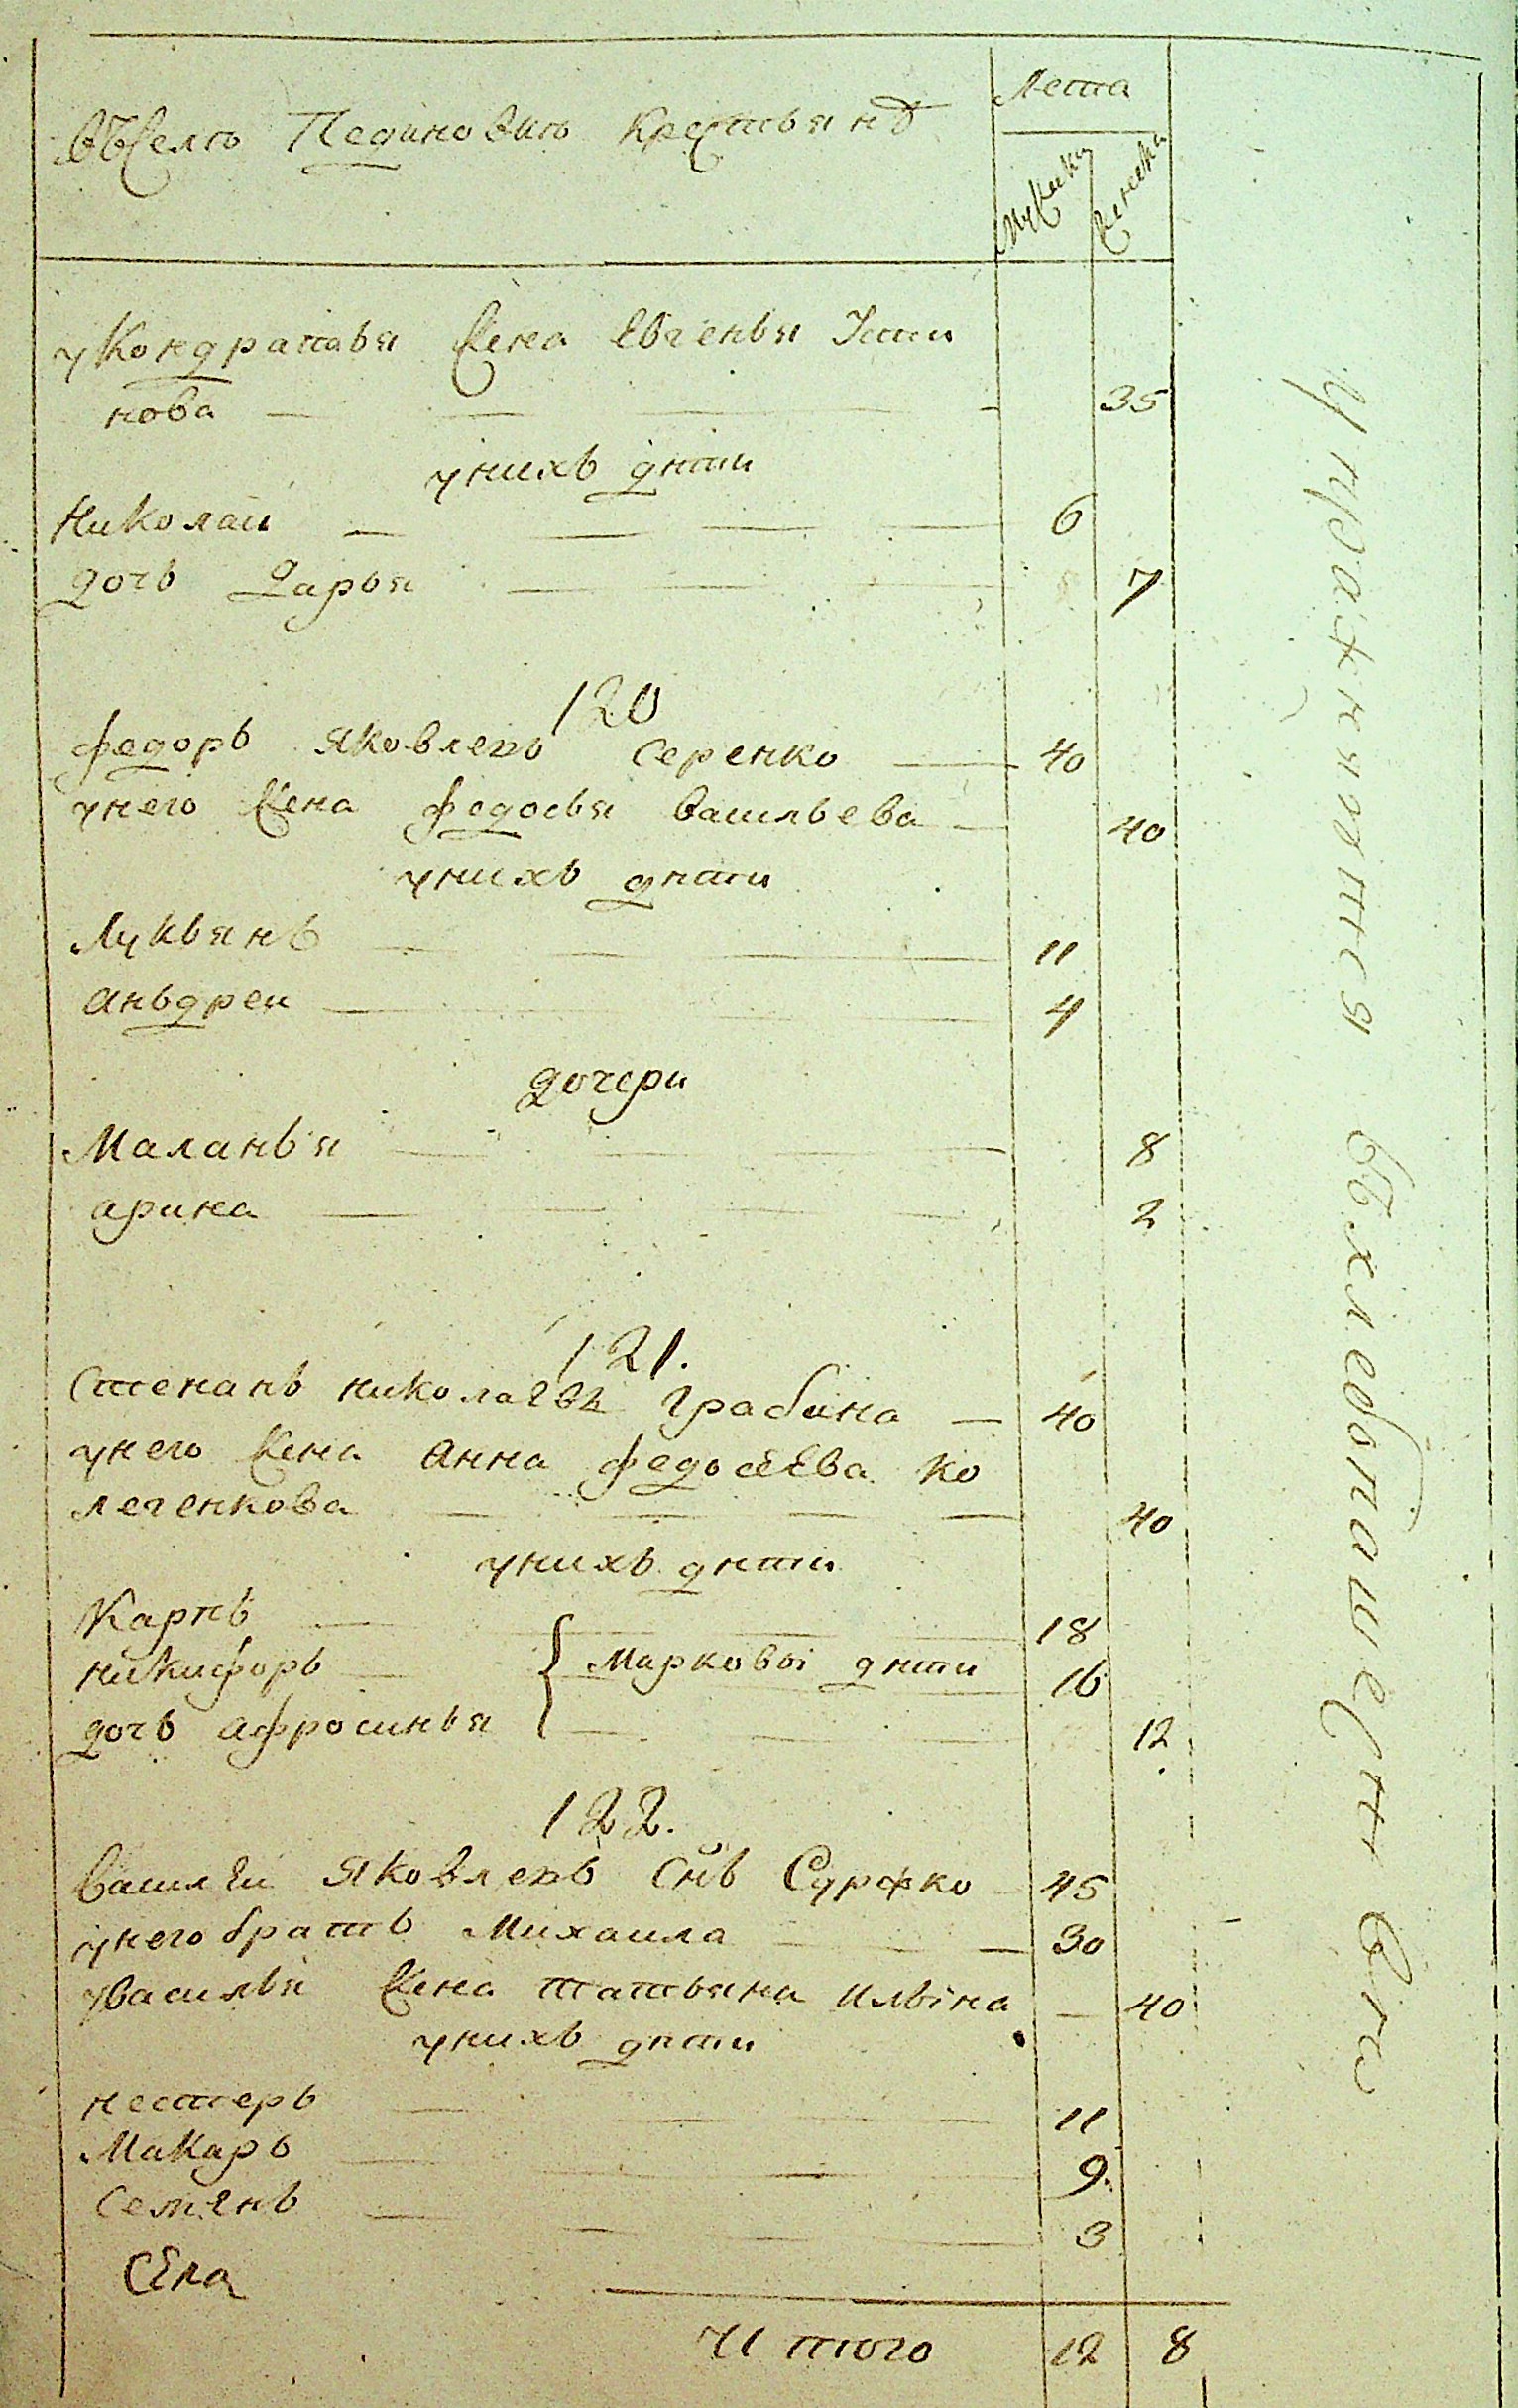 Лета
въ селѣ Пединовкѣ крестьянъ
мужска женска
у Кондратья жена Евгенья Усти
нова — — — — 35
у нихъ дѣти
Николай — — — — 6
дочь Дарья — — 7
120
федоръ яковлевъ Серенко — 40
у него жена федосья васильева — 40
у нихъ дѣти
Лукьянъ — — — — 11
аньдреи — — — — 4
дочери
Маланья — — — 8
арина — — — — 2
121.
Степанъ николаевъ Грабина — 40
у него жена анна федосеева ко
легенкова — — — — 40
у нихъ дѣти
Карпъ — — — 18
никифоръ — { Марковы дѣти 16
дочь афросинья — — 12
122.
василеи яковлевъ снъ Сурфко — 45
у него братъ Михаила — — 30
у василья жена татьяна ильина — 40
у нихъ дѣти
нестеръ — — — 11
Макаръ — — — 9
Семенъ — — — 3
Села
Итого 12 8
Упражняются въ хлебопашестве